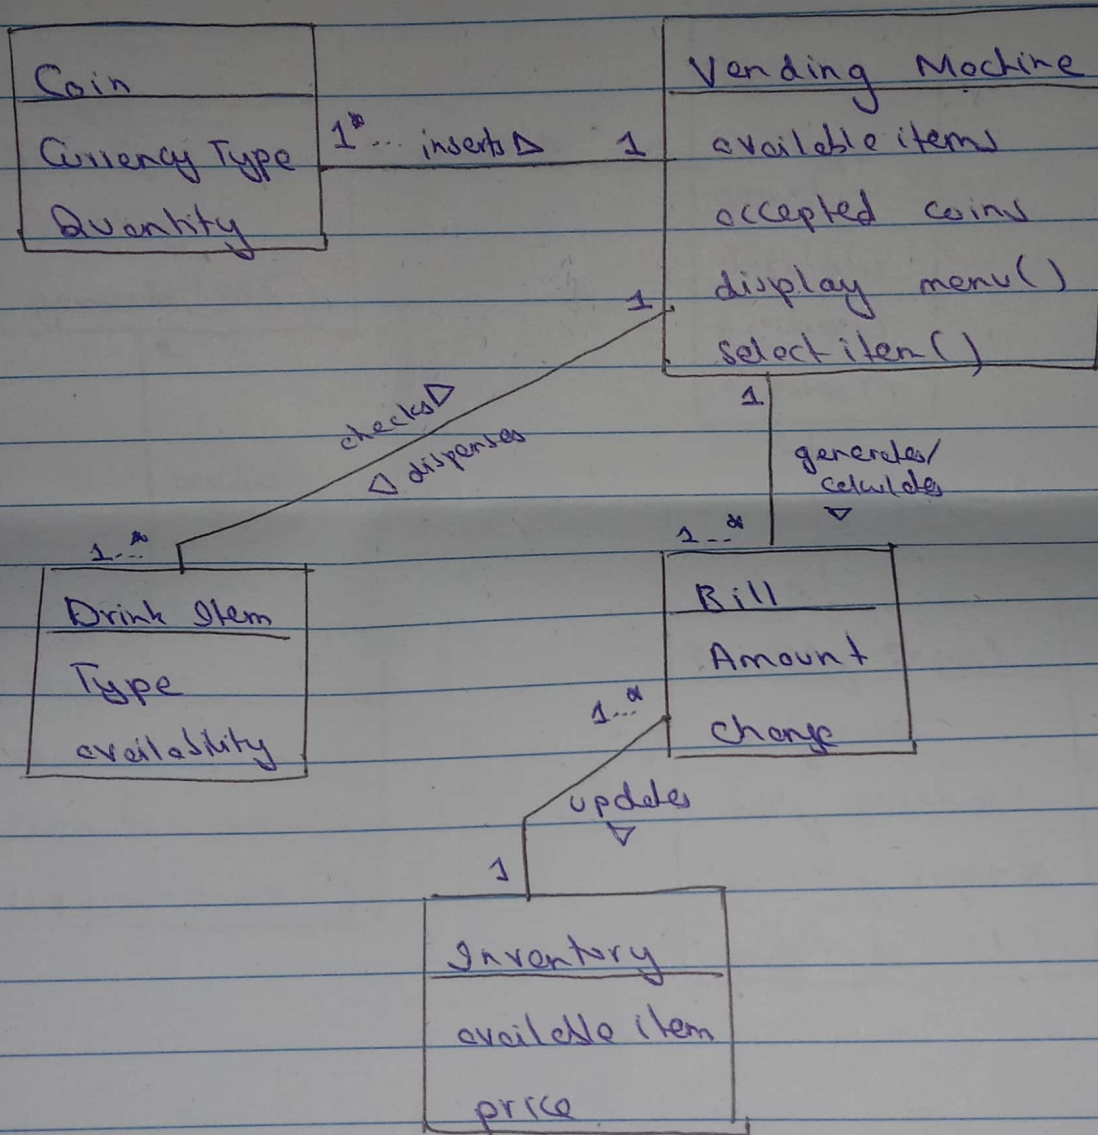 Coin
Currency Type
Quantity
1*... inserts ▷ 1
Vending Machine
available items
accepted coins
display menu()
select item()
1
checks ▷
◁ dispenses
1...*
1
generates/
calculates
▽
1...*
Drink Item
Type
availability
Bill
Amount
Change
1...*
updates
▽
1
Inventory
available item
price